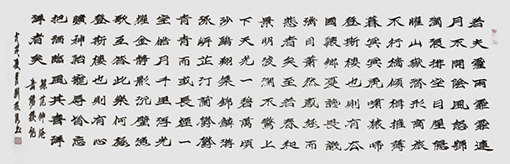 若夫霪雨霏霏連
月不開陰風怒號
濁浪排空日星隱
曜山岳潛形商旅
不行檣傾楫摧薄
暮冥冥虎嘯猿啼
登斯樓也則有去
國懷鄉憂讒畏譏
滿目蕭然感極而
悲者矣至若春和
景明波瀾不驚上
下天光一碧萬頃
沙鷗翔集錦鱗游
泳岸芷汀蘭鬱鬱
青青而或長煙一
空皓月千里浮光
躍金靜影沉璧漁
歌互答此樂何極
登斯樓也則有心
曠神怡寵辱偕忘
把酒臨風其喜洋
洋者矣
錄范仲淹
岳陽樓記